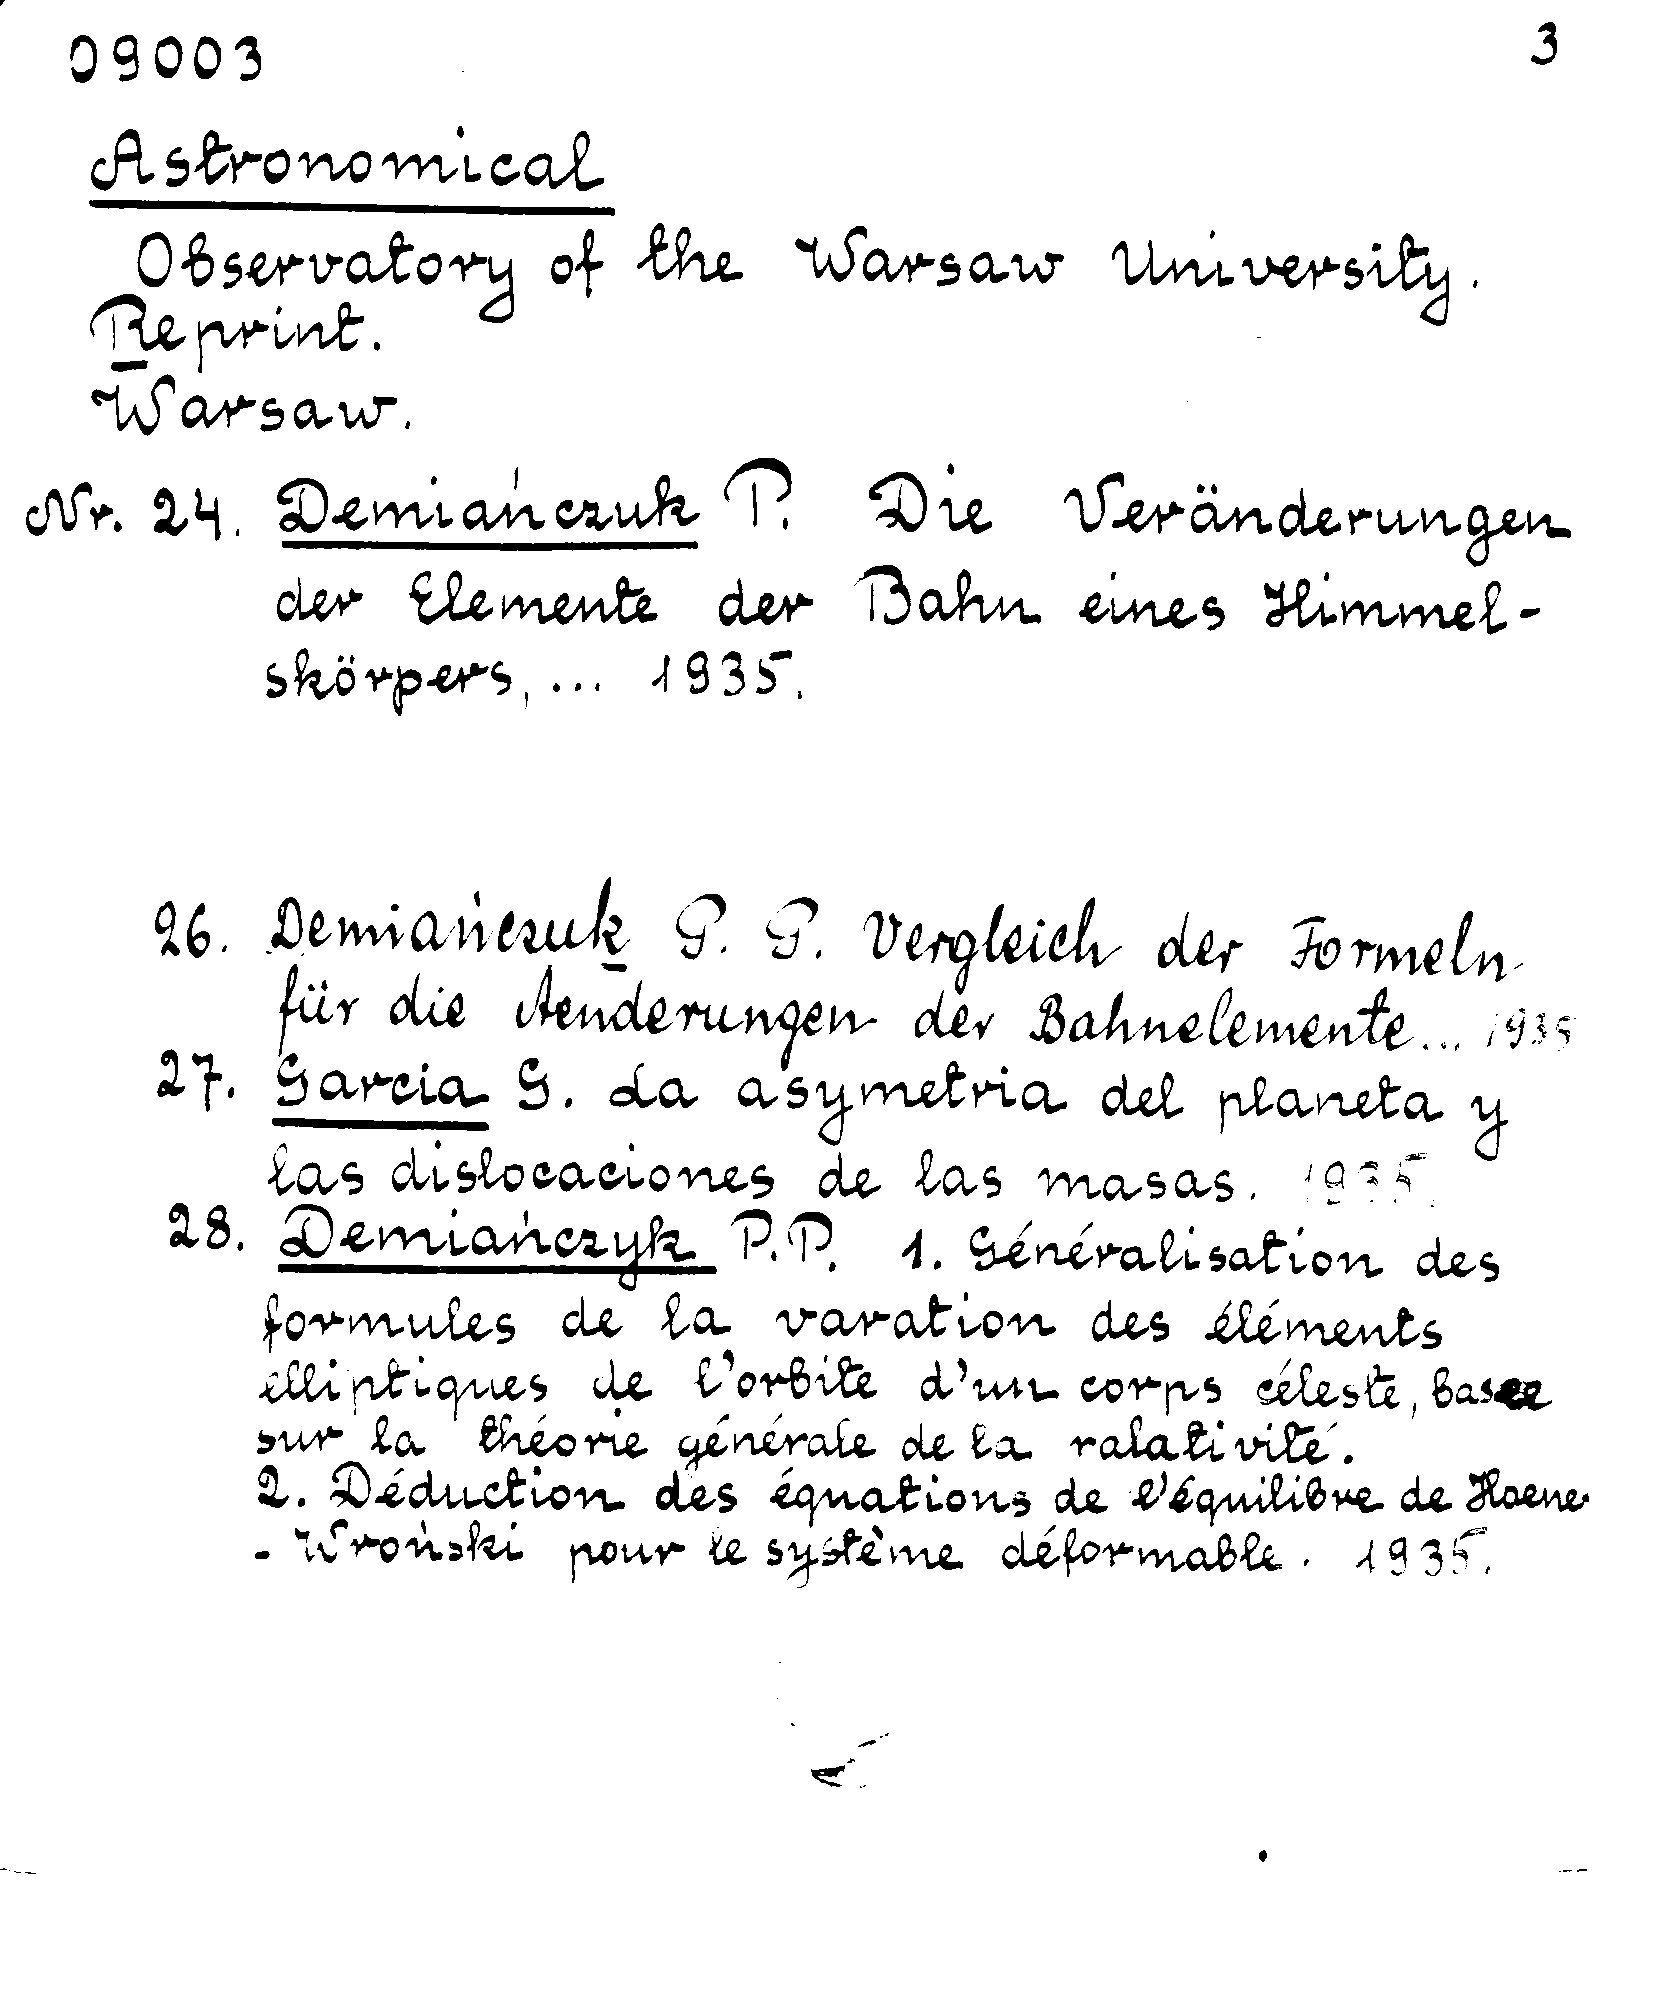 09003 3
Astronomical
Observatory of the Warsaw University.
Reprint.
Warsaw.
Nr. 24. Demiańczuk P. Die Veränderungen
der Elemente der Bahn eines Himmel-
skörpers, ... 1935.
26. Demiańczuk P. P. Vergleich der Formeln
für die Aenderungen der Bahnelemente... 1935
27. Garcia G. La asymetria del planeta y
las dislocaciones de las masas. 1935.
28. Demiańczyk P.P. 1. Généralisation des
formules de la varation des éléments
elliptiques de l'orbite d'un corps céleste, basee
sur la théorie générale de la ralativité.
2. Déduction des équations de l'équilibre de Hoene
- Wroński pour le système déformable. 1935.